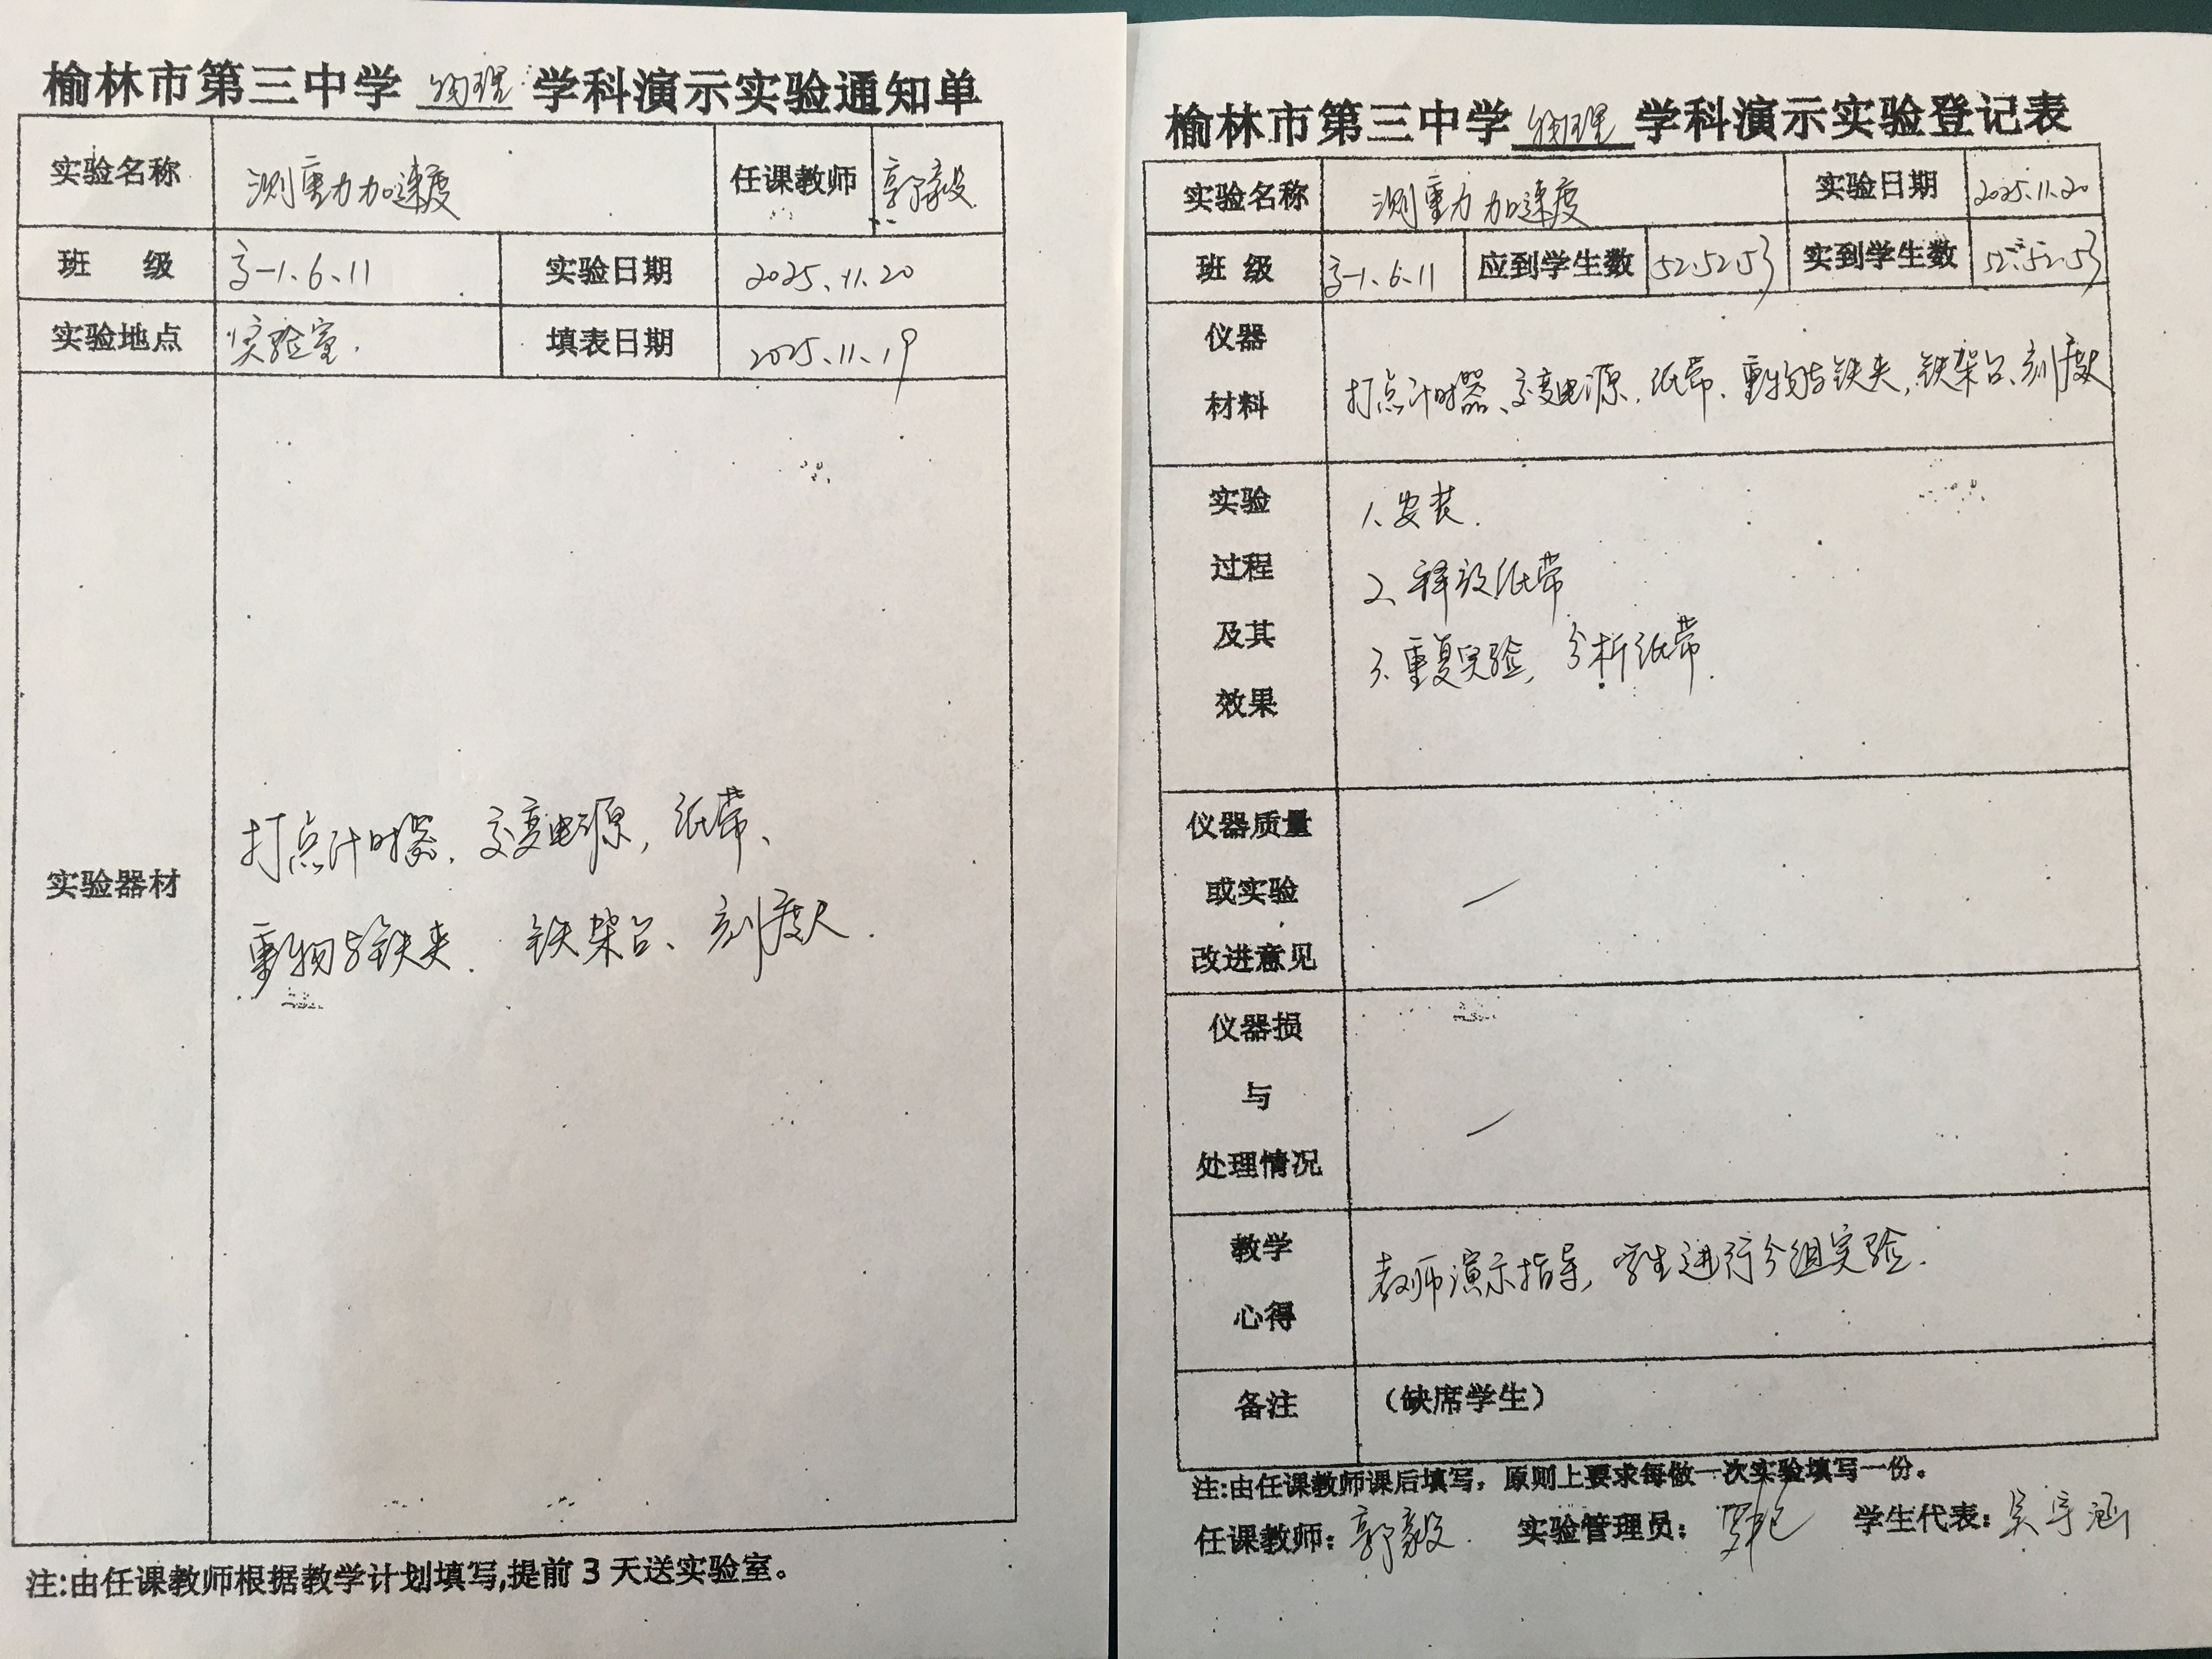 榆林市第三中学 物理 学科演示实验通知单
实验名称 测重力加速度 任课教师 郭毅
班 级 高一1.6.11 实验日期 2025.11.20
实验地点 实验室. 填表日期 2025.11.19
实验器材
打点计时器、交变电源, 纸带、
重物与铁夹. 铁架台、刻度尺.
注:由任课教师根据教学计划填写,提前3天送实验室。
榆林市第三中学 物理 学科演示实验登记表
实验名称 测重力加速度 实验日期 2025.11.20
班 级 高一1.6.11 应到学生数 52.52.53 实到学生数 52.52.53
仪器
材料
打点计时器、交变电源, 纸带、重物与铁夹, 铁架台、刻度尺
实验
过程
及其
效果
1、安装.
2、释放纸带
3、重复实验, 分析纸带.
仪器质量
或实验
改进意见
仪器损
与
处理情况
教学
心得
教师演示指导, 学生进行分组实验.
备注 (缺席学生)
注:由任课教师课后填写，原则上要求每做一次实验填写一份。
任课教师: 郭毅 实验管理员: 学生代表: 吴宇涵